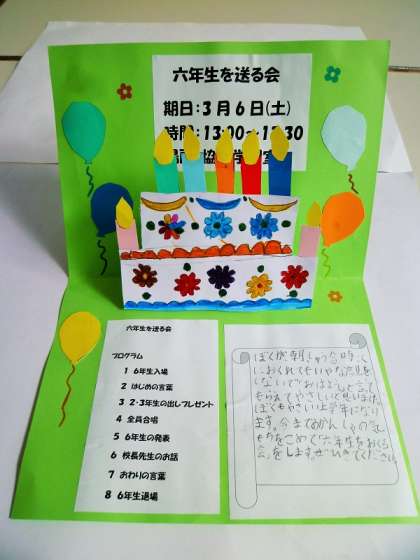 六年生を送る会
期日:3月6日(土)
時間:13:00~13:30
六年生を送る会
プログラム
1 6年生入場
2 はじめの言葉
3 2・3年生の出しプレゼント
4 全員合場
5 6年生の発表
6 校長先生のお話
7 おわりの言葉
8 6年生退場
におくれてもいやな顔を
しないでおはようと言って
もらえてやさしいと思いました。
ぼくもやさしい上学年になり
ます。今までのかんしゃの気
もちをこめて六年生をおくる
会をします。ぜひきてください。